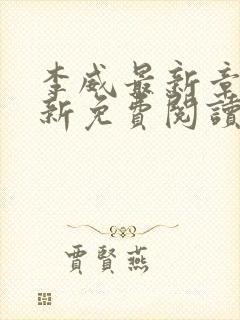 李威最新章
新免費閱讀
賈賢燕